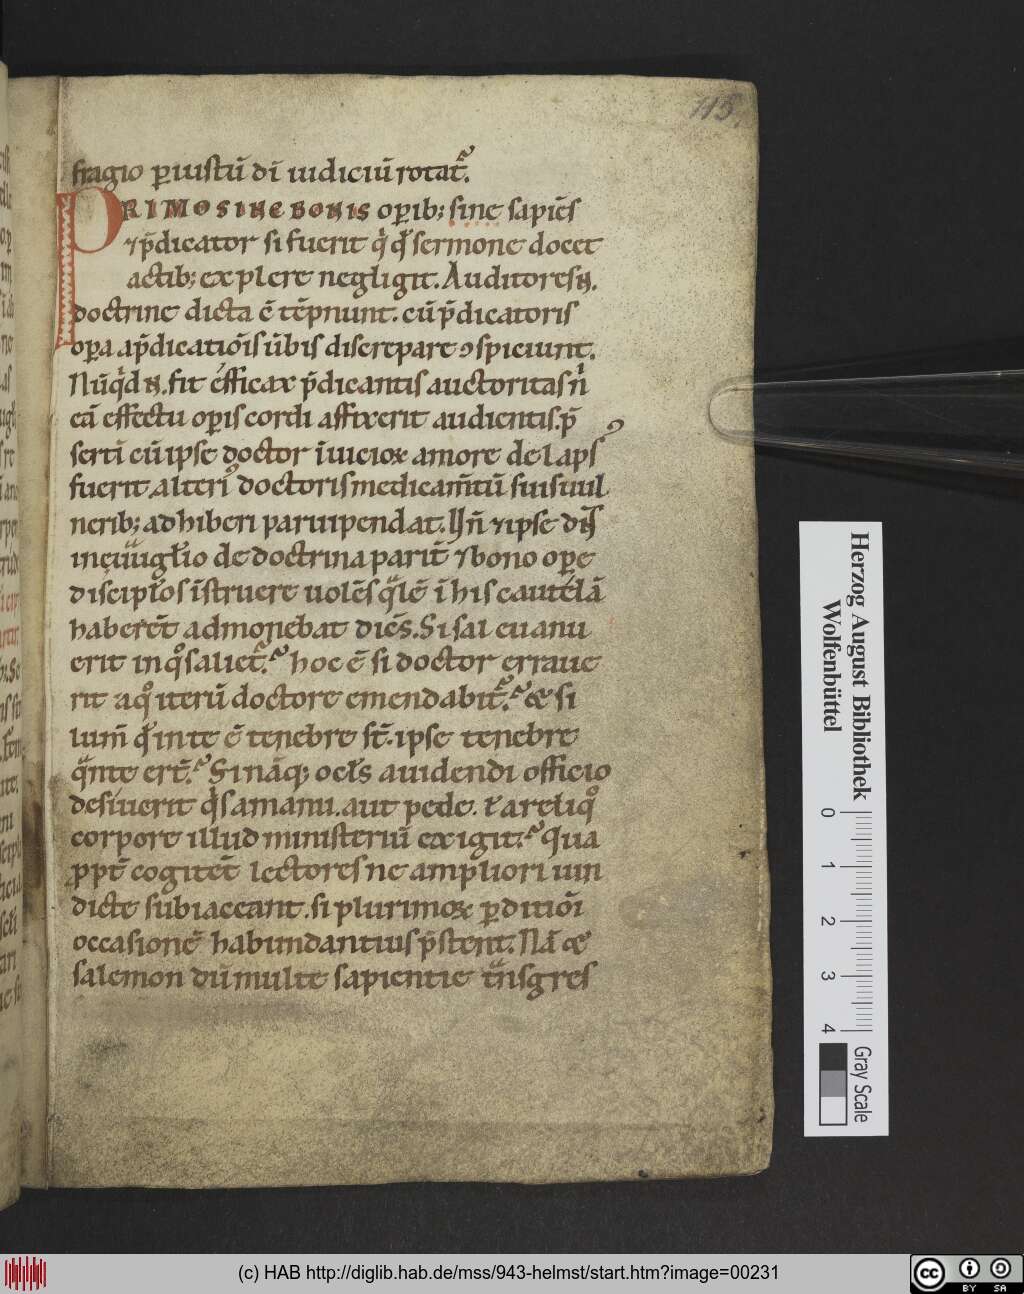 115.
fragio p iustū dī iudiciū rotat̄.
PRIMO SINE BONIS opib; sine sapiēs
⁊ p̄dicator si fuerit q̇ q̄ sermone docet
actib; explere negligit. Auditores n̄.
doctrine dicta c̄tēpnunt. cū p̄dicatoris
opa a p̄dicatiōis ūbis discrepare ɔspiciunt.
Nūq̇d n̄. fit efficax p̄dicantis auctoritas n̄
eā effectu opis cordi affixerit audientis. p̄
serti cū ipse doctor ī uicioꝝ amore delapsꝰ
fuerit alteriꝰ doctoris medicam̄tū suis uul
nerib; adhiberi paruipendat. Hn̄ ⁊ ipse dn̄s
in euuāgl̄io de doctrina parit̄ ⁊ bono ope
discipl̄os īstruere uolēs q̄lē ī his cautelā
haberēt admonebat dicēs. Si sal euanu
erit in qͦ saliet̄. hoc ē si doctor erraue
rit a qͦ iterū doctore emendabit̄. & si
lum̄ q̄ in te ē tenebre st̄. ipse tenebre
q̄nte ert̄. Si nāq; ocl̄s a uidendi officio
desiuerit q̇s a manu. aut pede. ł a reliqͦ
corpore illud ministeriū exigit. Qua
ppt̄ cogitēt lectores ne ampliori uin
dicte subiaceant. si plurimoꝝ pditiōi
occasionē habundantius p̄stent. Nā &
salemon dū multe sapientie tn̄sgres
Herzog August Bibliothek
Wolfenbüttel
0 1 2 3 4
Gray Scale
(c) HAB http://diglib.hab.de/mss/943-helmst/start.htm?image=00231
cc BY SA